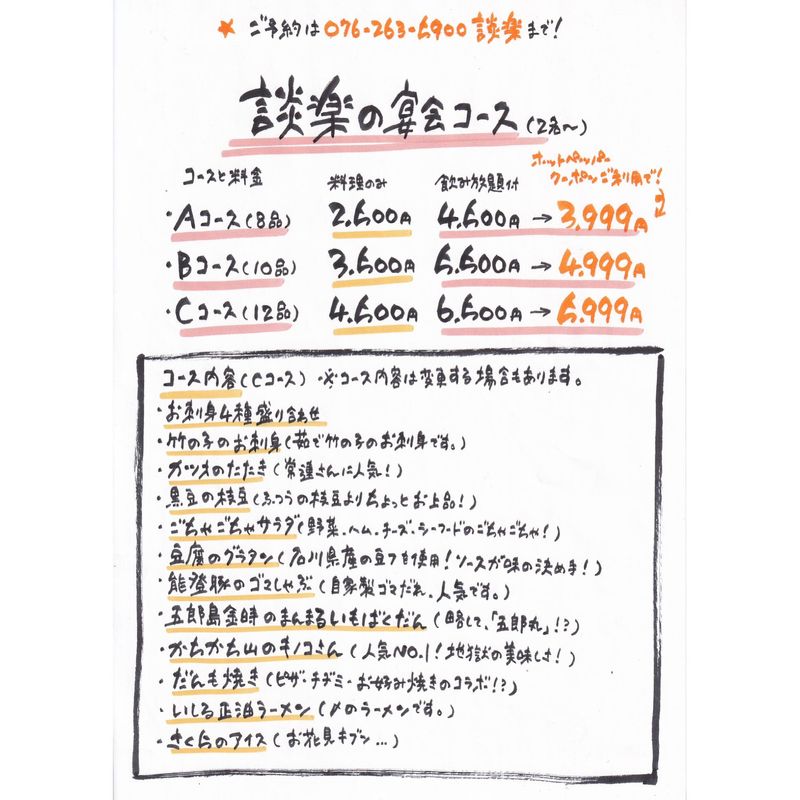 ★ ご予約は076-263-5900 談楽まで!
談楽の宴会コース(2名〜)
ホットペッパー
クーポンご利用で!
コースと料金 料理のみ 飲み放題付
・Aコース(8品) 2.500円 4.500円→3.999円
・Bコース(10品) 3.500円 5.500円→4.999円
・Cコース(12品) 4.500円 6.500円→5.999円
コース内容(Cコース) ※コース内容は変更する場合もあります。
・お刺身4種盛り合わせ
・竹の子のお刺身(茹で竹の子のお刺身です。)
・カツオのたたき(常連さんに人気!)
・黒豆の枝豆(ふつうの枝豆よりちょっとお上品!)
・ごちゃごちゃサラダ(野菜、ハム、チーズ、シーフードのごちゃごちゃ!)
・豆腐のグラタン(石川県産の豆フを使用!ソースが味の決め手!)
・能登豚のゴマしゃぶ(自家製ゴマだれ、人気です。)
・五郎島金時のまんまるいもばくだん(略して、「五郎丸」!?)
・かちかち山のキノコさん(人気NO.1!地獄の美味しさ!)
・だんも焼き(ピザ・チヂミ・お好み焼きのコラボ!?)
・いしる正油ラーメン(〆のラーメンです。)
・さくらのアイス(お花見キブン…)